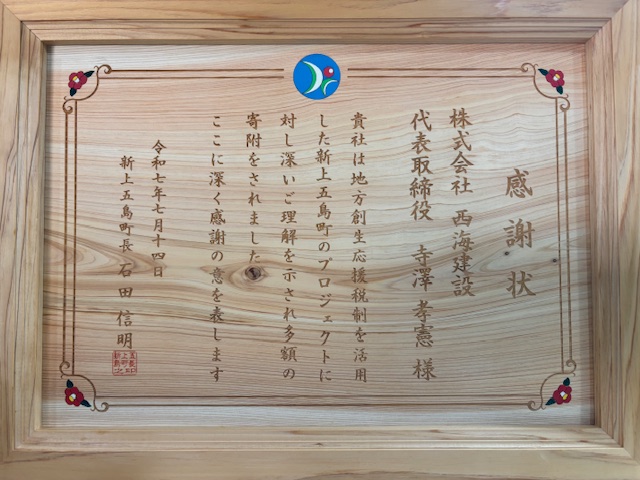 感謝状
株式会社 西海建設
代表取締役 寺澤孝憲様
貴社は地方創生応援税制を活用
した新上五島町のプロジェクトに
対し深いご理解を示され多額の
寄附をされました
ここに深く感謝の意を表します
令和七年七月十四日
新上五島町長 石田信明